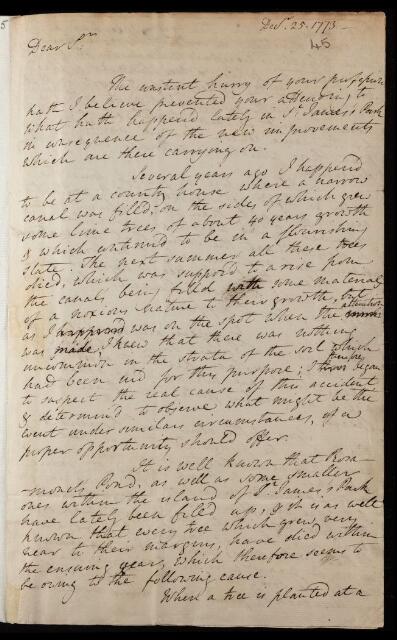 Decr. 25. 1773.
45
Dear Sr.
The constant hurry of your profession
hath I believe prevented your attending to
what hath happend lately in St. James's Park
in consequence of the new improvements
which are there carrying on.
Several years ago I happend
to be at a country house where a narrow
canal was fill'd, on the sides of which grew
some lime trees of about 40 years growth
& which continued to be in a flourishing
state. The next summer all these trees
died, which was suppos'd to arise from
the canals being filled with some material
of a noxious nature to their growth, but
as I happend was on the spot when the alteration
was made, I knew that there was nothing
uncommon in the strata of the soil which
had been us'd for this purpose; I therefore began
to suspect the real cause of this accident
& determin'd to observe what might be the
event under similar circumstances, if a
proper opportunity should offer.
It is well known that Rosa-
-monds Pond, as well as some smaller
ones within the island of St. James's Park
have lately been filled up, & it is as well
known that every tree which grew very
near to their margins, have died within
the ensuing year, which therefore seems to
be owing to the following cause.
When a tree is planted at a